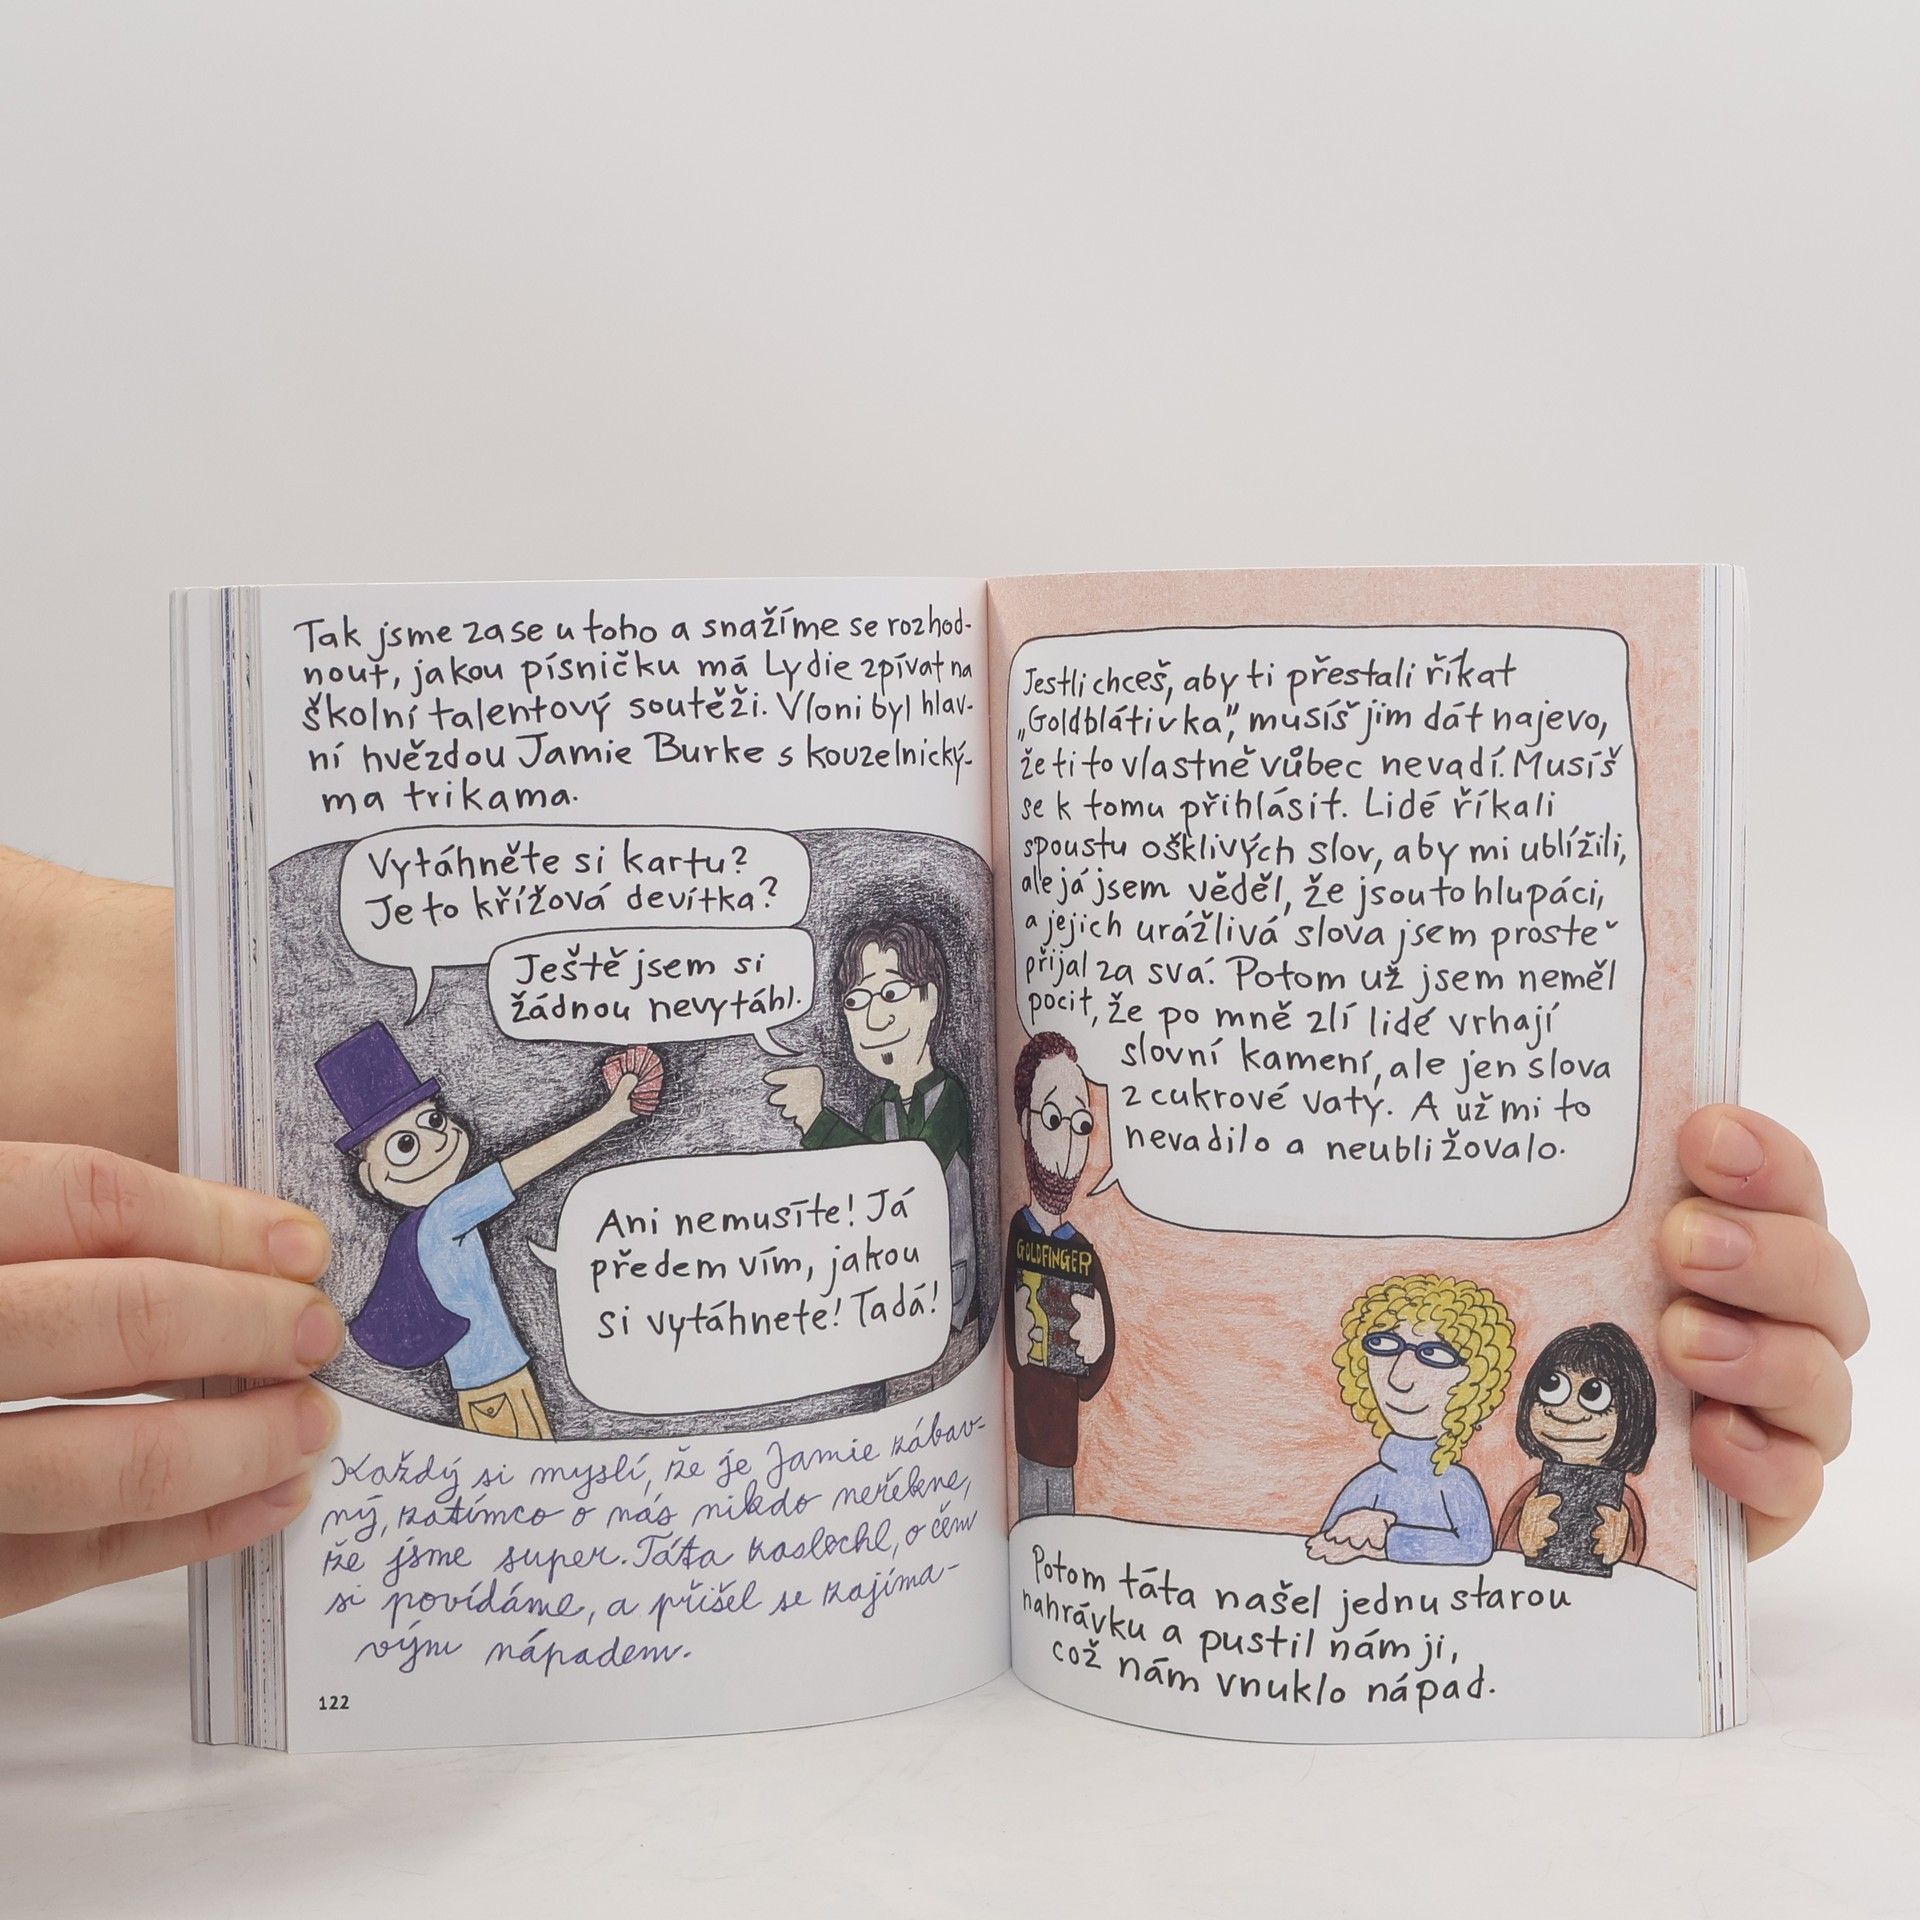 Tak jsme zase u toho a snažíme se rozhod-
nout, jakou písničku má Lydie zpívat na
školní talentový soutěži. Vloni byl hlav-
ní hvězdou Jamie Burke s kouzelnický-
ma trikama.
Vytáhněte si kartu?
Je to křížová devítka?
Ještě jsem si
žádnou nevytáhl.
Ani nemusíte! Já
předem vím, jakou
si vytáhnete! Tadá!
Každý si myslí, že je Jamie zábav-
ný, zatímco o nás nikdo neřekne,
že jsme super. Táta zaslechl, o čem
si povídáme, a přišel se zajíma-
vým nápadem.
122
Jestli chceš, aby ti přestali říkat
„Goldblátivka“, musíš jim dát najevo,
že ti to vlastně vůbec nevadí. Musíš
se k tomu přihlásit. Lidé říkali
spoustu ošklivých slov, aby mi ublížili,
ale já jsem věděl, že jsou to hlupáci,
a jejich urážlivá slova jsem prostě
přijal za svá. Potom už jsem neměl
pocit, že po mně zlí lidé vrhají
slovní kamení, ale jen slova
z cukrové vaty. A už mi to
nevadilo a neubližovalo.
GOLDFINGER
Potom táta našel jednu starou
nahrávku a pustil nám ji,
což nám vnuklo nápad.